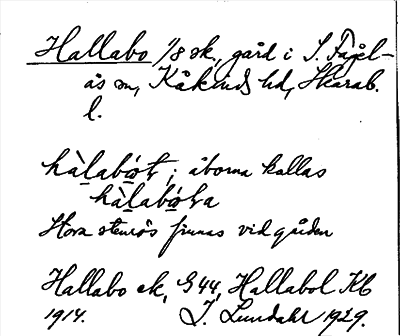 Hallabo 1/8 sk., gård i S. Fågel-
ås sn, Kåkinds hd, Skarab.
l.
hàlabo̱t ; åborna kallas
hàlabo̱ta
Stora stenrös finnas vid gården
Hallabo ek, G 44, Hallabol Kb
1914. J. Lundahl 1929.